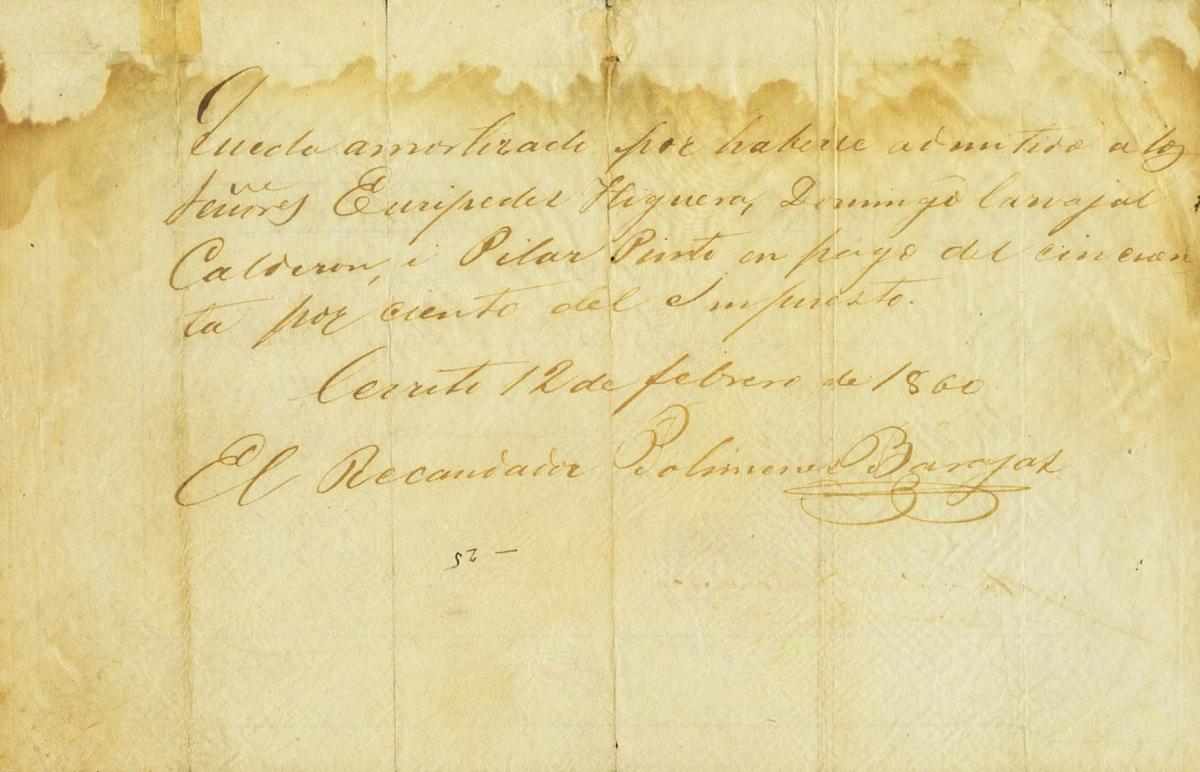 Queda amortizado por haberse admitido a los
señores Euripedes Higuera, Domingo Carvajal
Calderon, i Pilar Pinto en pago del cincuen
ta por ciento del Impuesto.
Cerrito 12 de febrero de 1860
El Recaudador Barajas
52 —